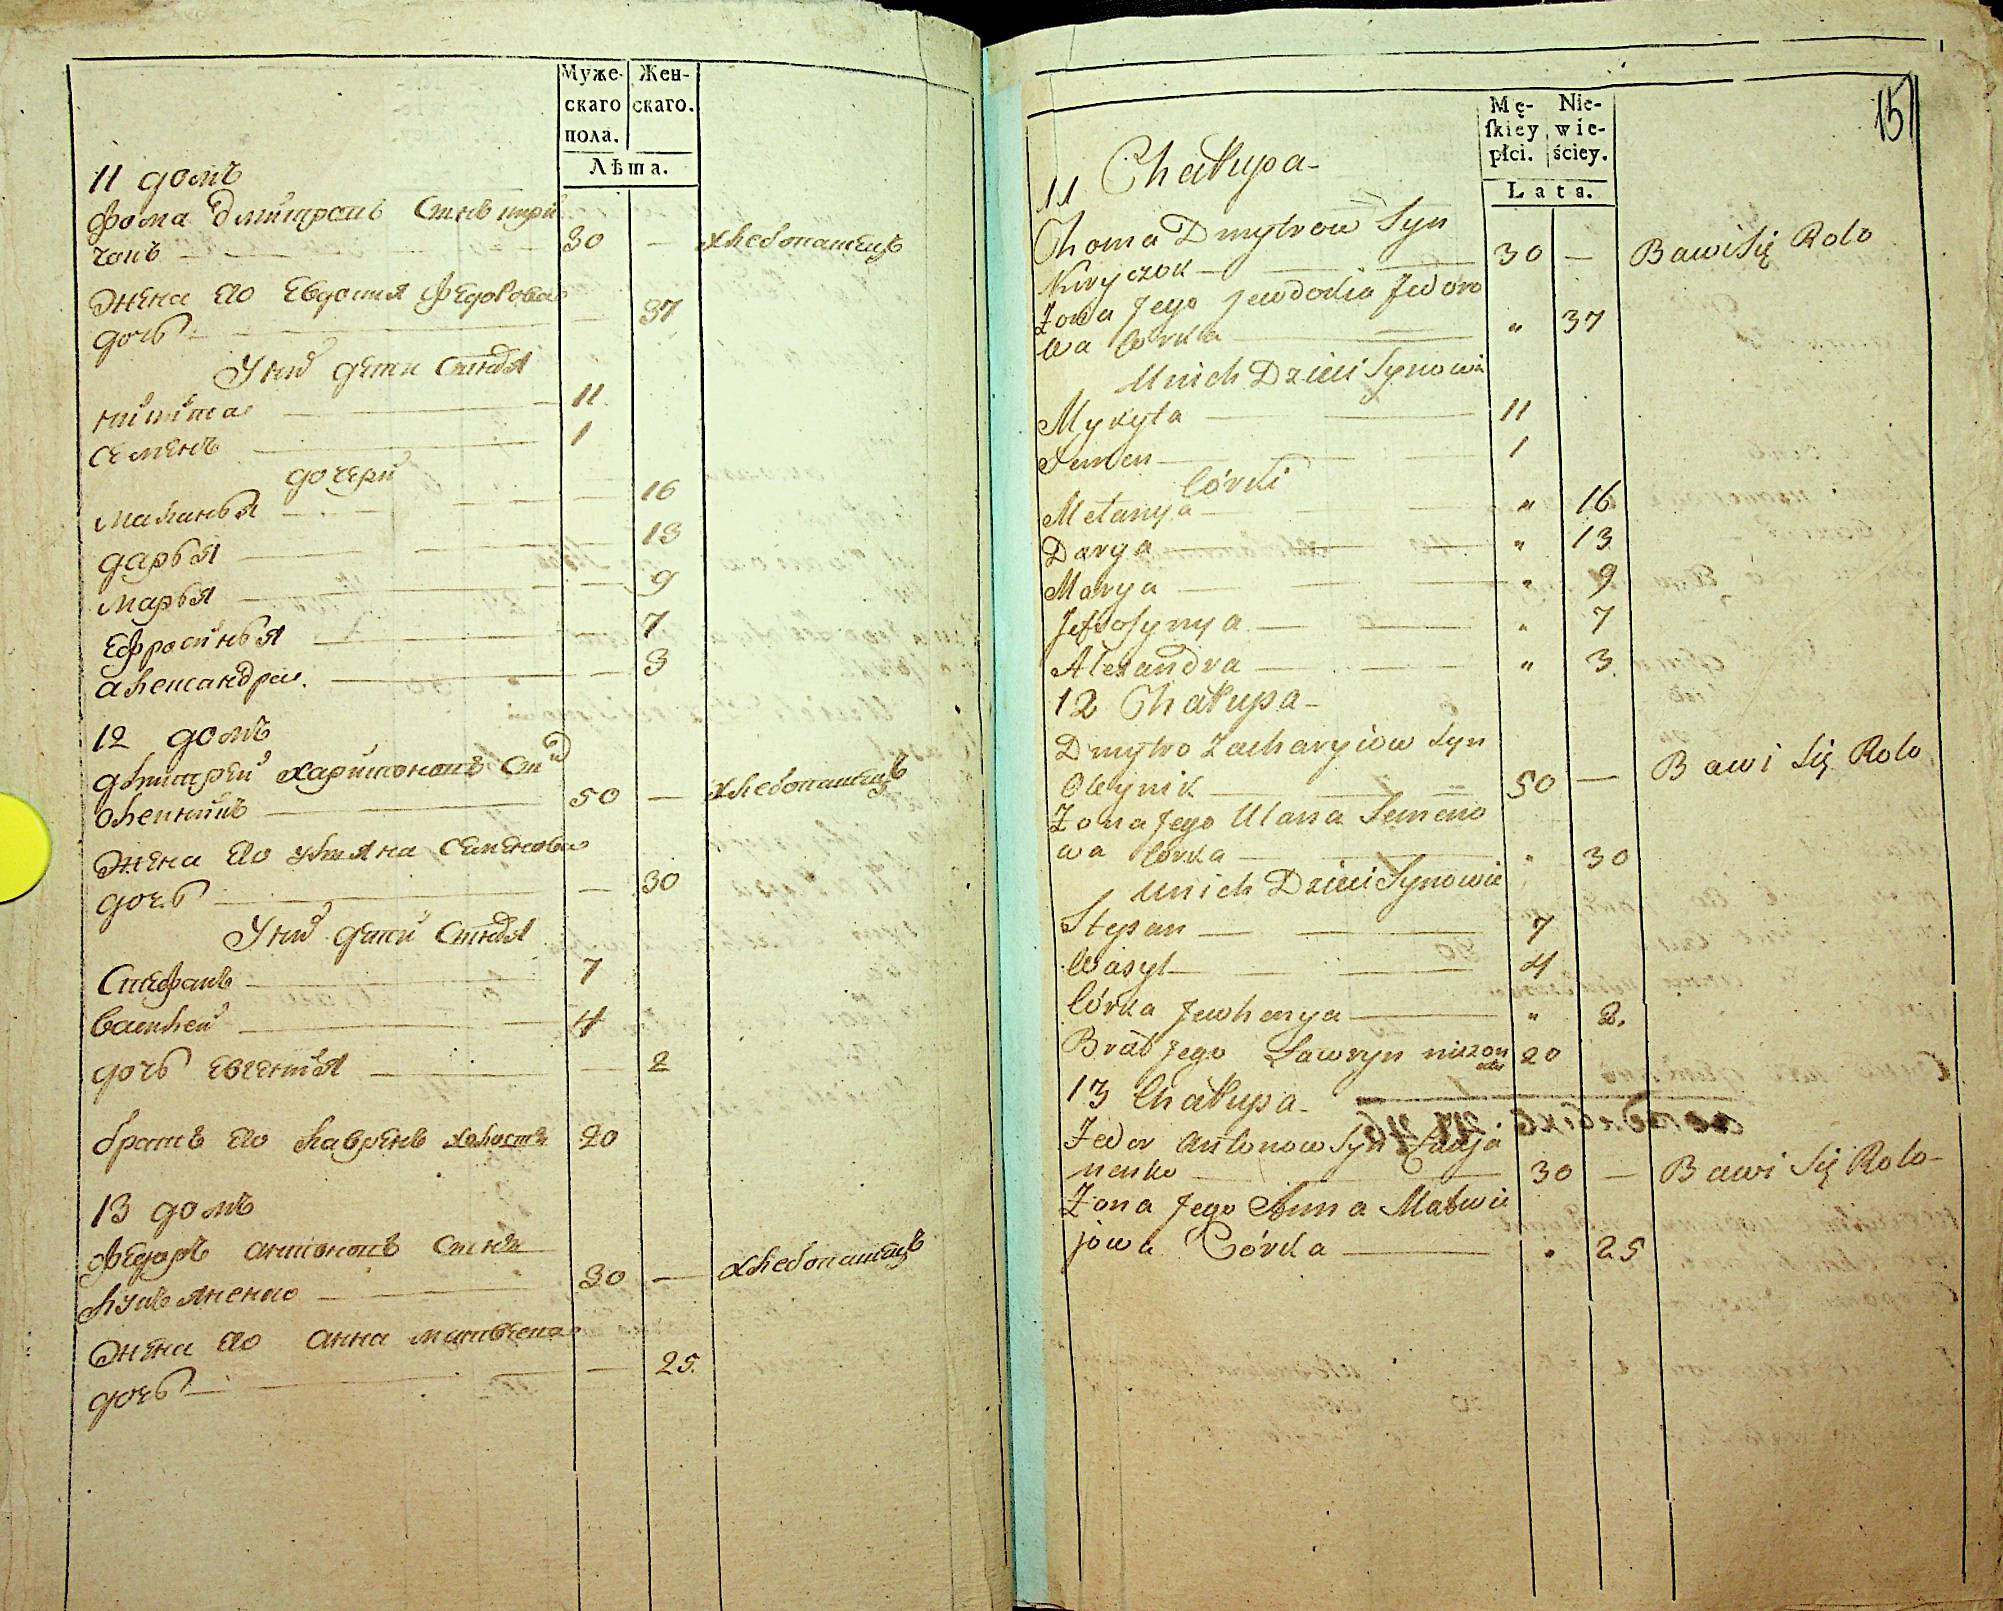 Муже-
скаго
пола.
Жен-
скаго.
Лѣта.
11 домъ
Фома дмитровъ Синъ кири
чокъ 30 — хлебопашецъ
Жена его Евдокия Федорова
дочь 37
У них дети Синовя
никита 11
Семенъ 1
дочери
маланья 16
дарья 13
марья 9
Ефросинья 7
александра 3
12 домъ
дмитрей харитоновъ Син
олейникъ 50 — хлебопашецъ
Жена его улияна Семенова
дочь 30
У них дети Синовя
Стефанъ 7
василей 4
дочь евгения 2
братъ его лавренъ холостъ 20
13 домъ
Федоръ антоновъ Синъ
30 — хлебопашецъ
Жена его анна матвеева
дочь 25
151
Mę-
ſkiey
płci.
Nie-
wie-
ściey.
Lata.
11 Chałupa
Choma Dmytrow Syn
Kiryczok 30 — Bawi Się Rolo
Żona Jego Jewdokia Fedoro
wa Córka " 37
U nich Dzieci Synowie
Mykyta 11
Semen 1
Córki
Mełanya " 16
Darya " 13
Marya " 9
Jefrosynya " 7
Alexandra " 3
12 Chałupa
Dmytro Zacharyiow Syn
Oleynik 50 — Bawi Się Rolo
Żona Jego Ulana Semeno
wa Córka " 30
U nich Dzieci Synowie
Stepan 7
Wasyl 4
Córka Jewhenya " 2.
Brat Jego Ławryn nieżon
aty 20
13 Chałupa
Fedor Antonow Syn
nenko 30 — Bawi Się Rolo
Żona Jego Anna Matwie
jowa Córka " 25